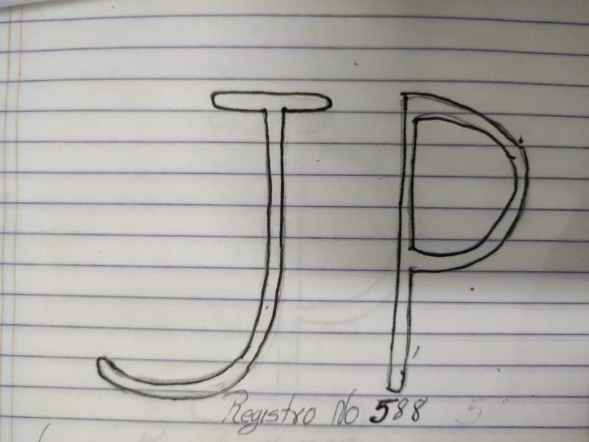 JP
Registro No 588